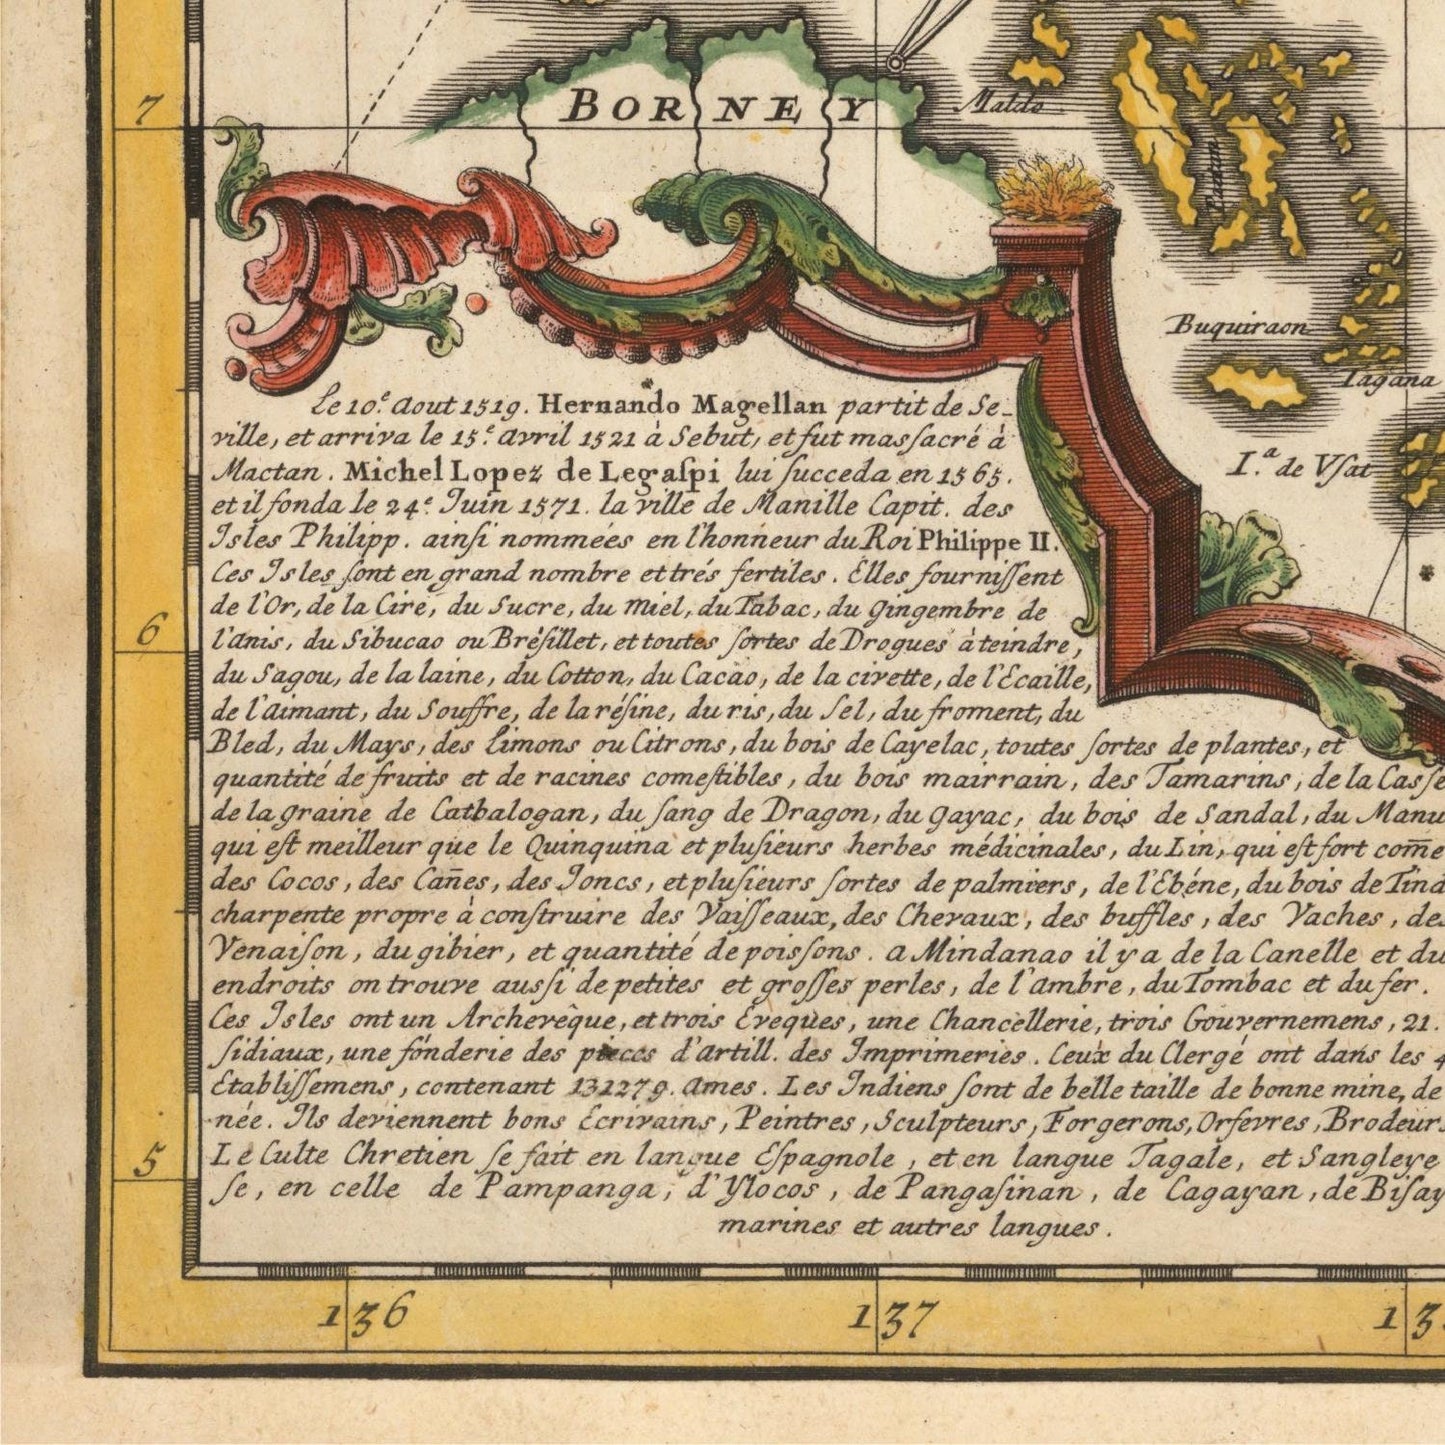 7
BORNEY
Maldo
Paxan
Buquiraon
Tagana
I.ª de Vſat
Le 10.e Aout 1519. Hernando Magellan partit de Se-
ville, et arriva le 15.e Avril 1521 à Sebut, et fut maſsacré à
Mactan. Michel Lopez de Legaſpi lui ſucceda en 1565.
et il fonda le 24.e Juin 1571. la ville de Manille Capit. des
Isles Philipp. ainſi nommées en l'honneur du Roi Philippe II.
Ces Isles ſont en grand nombre et trés fertiles. Elles fourniſſent
de l'Or, de la Cire, du Sucre, du Miel, du Tabac, du Gingembre de
l'Anis, du Sibucao ou Brésillet, et toutes ſortes de Drogues à teindre,
du Sagou, de la laine, du Cotton, du Cacao, de la civette, de l'Ecaille,
de l'Aimant, du Souffre, de la réſine, du ris, du ſel, du froment, du
Bled, du Mays, des Limons ou Citrons, du bois de Cayelac, toutes ſortes de plantes, et
quantité de fruits et de racines comeſtibles, du bois mairrain, des Tamarins, de la Caſſe
de la graine de Catbalogan, du ſang de Dragon, du Gayac, du bois de Sandal, du Manu
qui eſt meilleur que le Quinquina et pluſieurs herbes médicinales, du Lin, qui eſt fort com̄e
des Cocos, des Can̄es, des Joncs, et pluſieurs ſortes de palmiers, de l'Ebéne, du bois de Tind
charpente propre à conſtruire des Vaiſſeaux, des Chevaux, des buffles, des Vaches, des
Venaiſon, du gibier, et quantité de poisſons. a Mindanao il y a de la Canelle et du
endroits on trouve ausſi de petites et groſſes perles, de l'ambre, du Tombac et du fer.
Ces Isles ont un Archevêque, et trois Eveques, une Chancellerie, trois Gouvernemens, 21.
ſidiaux, une fonderie des pieces d'Artill. des Imprimeries. Ceux du Clergé ont dans les 4
Etabliſſemens, contenant 131279. Ames. Les Indiens ſont de belle taille de bonne mine, de
née. Ils deviennent bons Ecrivains, Peintres, Sculpteurs, Forgerons, Orfevres, Brodeurs
Le Culte Chretien ſe fait en langue Eſpagnole, et en langue Tagale, et Sangleye
ſe, en celle de Pampanga, d'Ylocos, de Pangaſinan, de Cagayan, de Biſay
marines et autres langues.
6
5
136
137
13